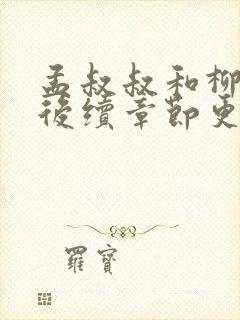 孟叔叔和柳
後續章節更
羅寶